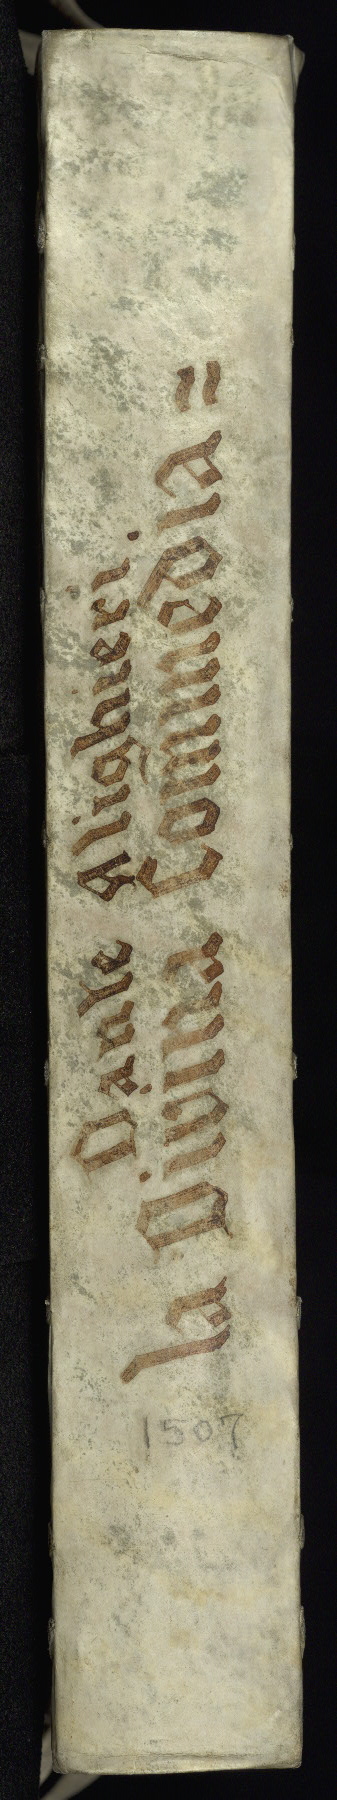 Dante Alighieri.
la Divina Commedia =
1507